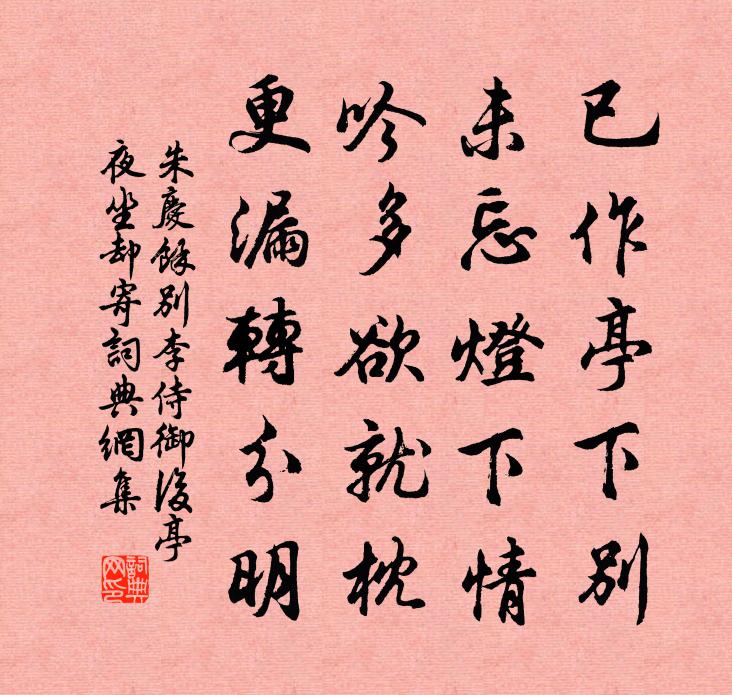 已作亭下別
未忘燈下情
吟多欲就枕
更漏轉分明
朱慶餘別李侍御後亭
夜坐却寄詞典網集
詞典
网印